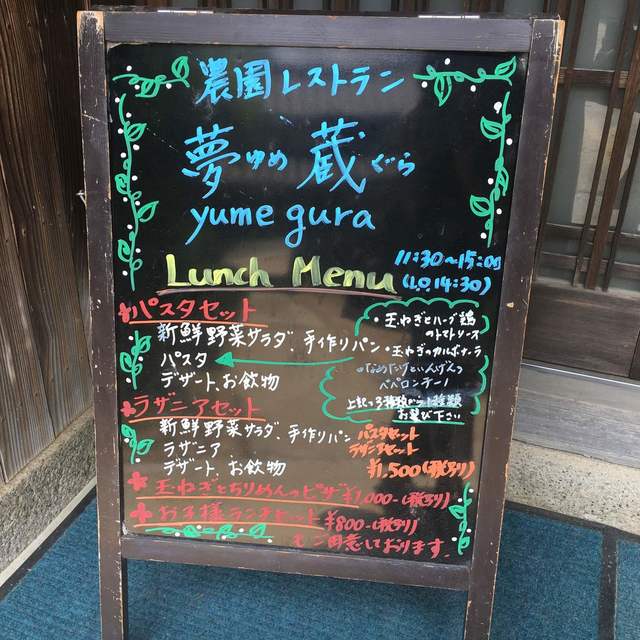 農園レストラン
夢ゆめ蔵ぐら
yume gura
Lunch Menu
11:30~15:00
(L.O.14:30)
パスタセット
新鮮野菜サラダ、手作りパン
パスタ
デザート、お飲物
・玉ねぎとハーブ鶏
のトマトソース
・玉ねぎのカルボナーラ
・なめたけといんげんの
ペペロンチーノ
上記の3種類から1種類
お選び下さい
ラザニアセット
新鮮野菜サラダ、手作りパン
ラザニア
デザート、お飲物
パスタセット
ラザニアセット
¥1,500(税込)
玉ねぎとちりめんのピザ¥1,000-(税込)
お子様ランチセット¥800-(税込)
もご用意しております